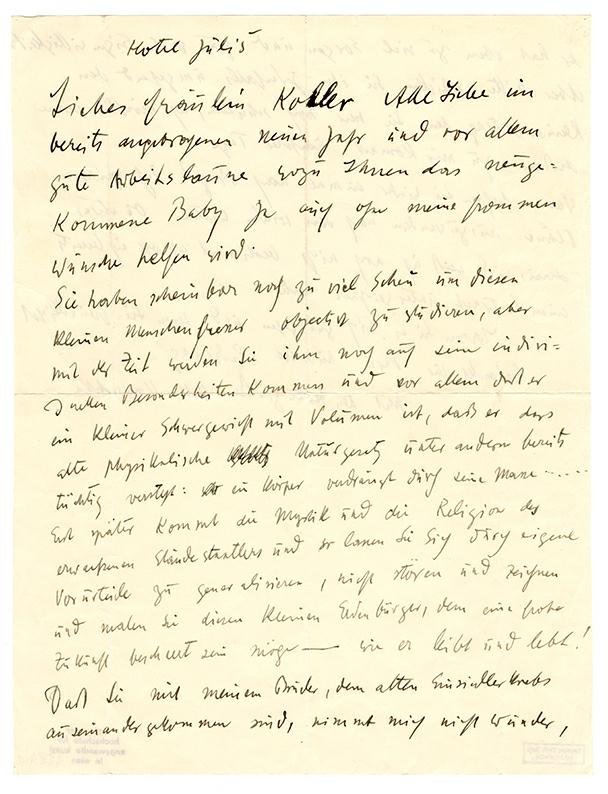 Hotel Juliš
Liebes Fräulein Koller Alle Liebe im
bereits angebrogenen neuen Jahr und vor allem
gute Arbeitslaune wozu Ihnen das neuge=
kommene Baby ja auch ohne meine frommen
Wünsche helfen wird.
Sie haben scheinbar noch zu viel Scheu um diesen
kleinen Menschenfresser objectiv zu studieren, aber
mit der Zeit werden Sie ihm noch auf seine indivi=
duellen Besonderheiten kommen und vor allem daß er
ein kleiner Schwergewicht mit Volumen ist, daß er das
alte physikalische Naturgesetz unter andern bereits
tüchtig versteht: ein Körper verdrängt durch seine Masse ......
Erst später kommt die Mystik und die Religion des
erwachsenen und so lassen Sie sich durch eigene
Vorurteile zu generalisieren, nicht stören und zeichnen
und malen Sie diesen kleinen Erdenbürger, dem eine frohe
Zukunft beschert sein möge — wie er leibt und lebt!
Daß Sie mit meinem Bruder, dem alten Einsiedlerkrebs
auseinandergekommen sind, nimmt mich nicht wunder,